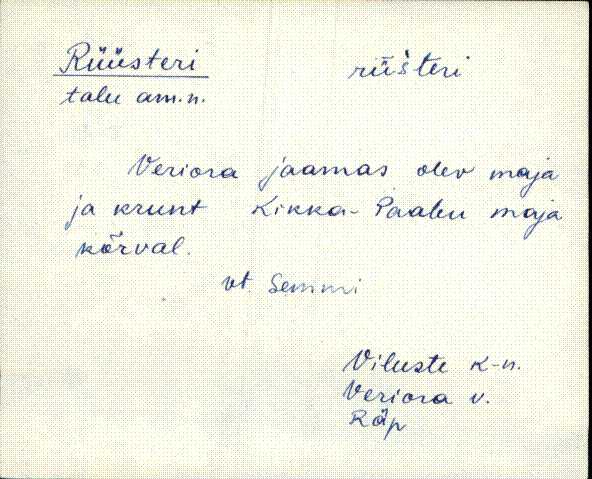 Rüüsteri rǖšteri
talu am.n.
Veriora jaamas olev maja
ja krunt Kikka-Paabu maja
kõrval.
vt. Semmi
Viluste k-n.
Veriora v.
Räp